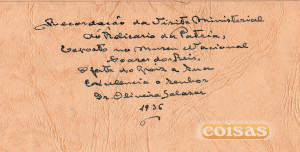 Recordação da Visita Ministerial
ao Relicario da Patria,
Exposto no Museu Nacional
Soares dos Reis,
Oferta do Groiz a Sua
Excelencia o Senhor
Dr. Oliveira Salazar
1936
coisas